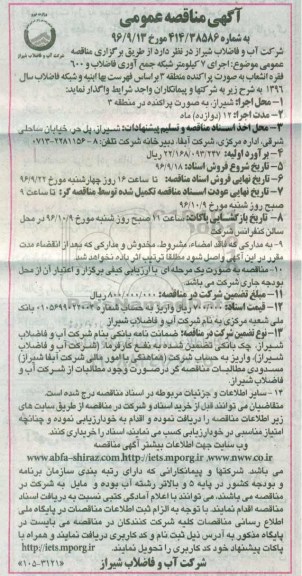 آگهی مناقصه عمومی
به شماره ۴۱۴/۳۸۵۸۶ مورخ ۹۶/۹/۱۳
شرکت آب و فاضلاب شیراز
شرکت آب و فاضلاب شیراز در نظر دارد از طریق برگزاری مناقصه
عمومی موضوع: اجرای ۷ کیلومتر شبکه جمع آوری فاضلاب و ۶۰۰
فقره انشعاب به صورت پراکنده منطقه ۳ براساس فهرست بها ابنیه و شبکه فاضلاب سال
۱۳۹۶ به شرح زیر به شرکتها و پیمانکاران واجد شرایط واگذار نماید:
۱- محل اجرا: شیراز، به صورت پراکنده در منطقه ۳
۲- مدت اجرا: ۱۲ (دوازده) ماه
۳- محل اخذ اسناد مناقصه و تسلیم پیشنهادات: شیراز، پل حر، خیابان ساحلی
شرقی، اداره مرکزی، شرکت آبفا، دبیرخانه شرکت تلفن: ۸-۰۷۱۳-۲۲۸۱۱۵۶
۴- برآورد اولیه: ۲۲/۱۶۸/۰۹۳/۲۴۷ ریال
۵- تاریخ شروع فروش اسناد: ۹۶/۹/۱۸
۶- تاریخ نهایی فروش اسناد مناقصه: تا ساعت ۱۶ روز چهارشنبه مورخ ۹۶/۹/۲۲
۷- تاریخ نهایی عودت اسناد مناقصه تکمیل شده توسط مناقصه گر: تا ساعت ۹
صبح روز شنبه مورخ ۹۶/۱۰/۹
۸- تاریخ بازگشایی پاکات: ساعت ۱۱ صبح روز شنبه مورخ ۹۶/۱۰/۹ در محل
سالن کنفرانس شرکت
۹- به مدارکی که فاقد امضاء، مشروط، مخدوش و مدارکی که بعد از انقضاء مدت
مقرر در این آگهی واصل شود مطلقا ترتیب اثر داده نخواهد شد.
۱۰- مناقصه به صورت یک مرحله ای با ارزیابی کیفی برگزار و اعتبار آن از محل
بودجه جاری شرکت می باشد.
۱۱- مبلغ تضمین شرکت در مناقصه: ۸۰۰/۰۰۰/۰۰۰ ریال
۱۲- قیمت اسناد: ریال واریز به حساب شماره بانک
ملی شعبه مرکزی به نام شرکت آب و فاضلاب شیراز
۱۳- نوع تضمین شرکت در مناقصه: ضمانت نامه بانکی بنام شرکت آب و فاضلاب
شیراز، چک بانکی تضمین شده به نفع کارفرما (شرکت آب و فاضلاب
شیراز)، واریز به حساب شرکت (هماهنگی با امور مالی شرکت آبفا شیراز)
مسدودی مطالبات مناقصه گر در صورت وجود مطالبات از شرکت آب و
فاضلاب شیراز
۱۴- سایر اطلاعات و جزئیات مربوطه در اسناد مناقصه درج شده است.
متقاضیان می توانند قبل از خرید اسناد و شرکت در مناقصه از طریق سایت های
زیر اطلاعات مناقصه را دریافت نموده و اقدام به خودارزیابی نموده و چنانچه
امتیاز مناسبی در خودارزیابی کسب می نمایند اسناد را خریداری کنند.
وب سایت جهت اطلاعات بیشتر آگهی مناقصه
www.abfa-shiraz.com.http://iets.mporg.ir .www.nww.co.ir
می باشد شرکتها و پیمانکارانی که دارای رتبه بندی سازمان برنامه
و بودجه کشور در پایه ۵ و بالاتر رشته آب بوده و مایل به شرکت در
مناقصه می باشند، می توانند با اعلام آمادگی کتبی نسبت به دریافت اسناد
مناقصه اقدام نمایند. با توجه به الزام ثبت اطلاعات مناقصات در پایگاه ملی
اطلاع رسانی مناقصات کلیه شرکت کنندگان در مناقصه می بایست در
پایگاه مذکور به آدرس ذیل ثبت نام و کد کاربری دریافت نمایند و همراه با
پاکات پیشنهاد خود کد کاربری را تحویل نمایند. http://iets.mporg.ir
شرکت آب و فاضلاب شیراز
«۱۰۵-۳۱۲۱»